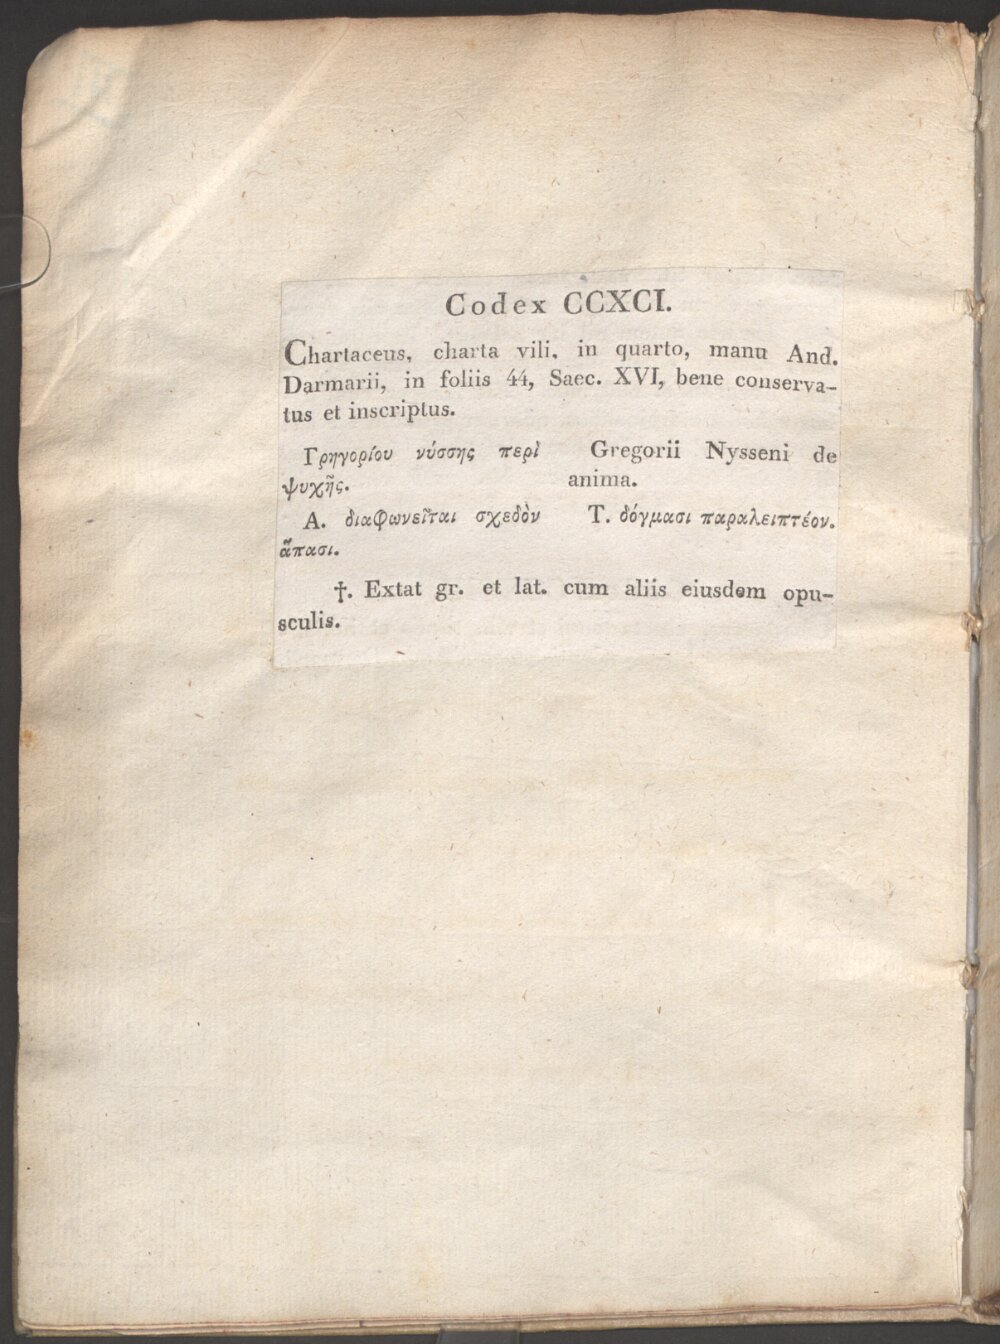 Codex CCXCI.
Chartaceus, charta vili, in quarto, manu And.
Darmarii, in foliis 44, Saec. XVI, bene conserva-
tus et inscriptus.
Γρηγορίου νύσσης περὶ
ψυχῆς.
Gregorii Nysseni de
anima.
Α. διαφωνεῖται σχεδὸν
ἅπασι.
Τ. δόγμασι παραλειπτέον.
†. Extat gr. et lat. cum aliis eiusdem opu-
sculis.